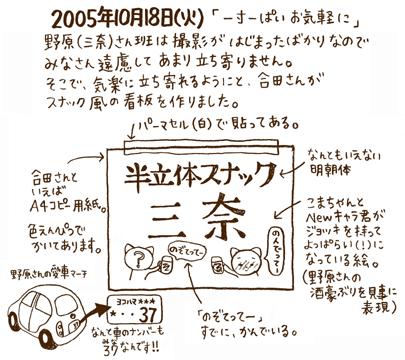 2005年10月18日(火)「一すーぱい お気軽に」
野原(三奈)さん班は撮影がはじまったばかりなので
みなさん遠慮してあまり立ち寄りません。
そこで、気楽に立ち寄れるようにと、合田さんが
スナック風の看板を作りました。
パーマセル(白)で貼ってある。
合田さんと
いえば
A4コピー用紙。
色えんぴつで
かいてあります。
半立体スナック
三奈
?
のぞてってー
のんでってー
なんともいえない
明朝体
こまちゃんと
Newキャラ君が
ジョッキを持って
よっぱらい(!)に
なっている絵。
(野原さんの
酒豪ぶりを見事に
表現)
野原さんの愛車マーチ
ヨコハマ***
*・・37
なんて車のナンバーも
37なんです!!
「のぞてってー」
すでに、かんでいる。